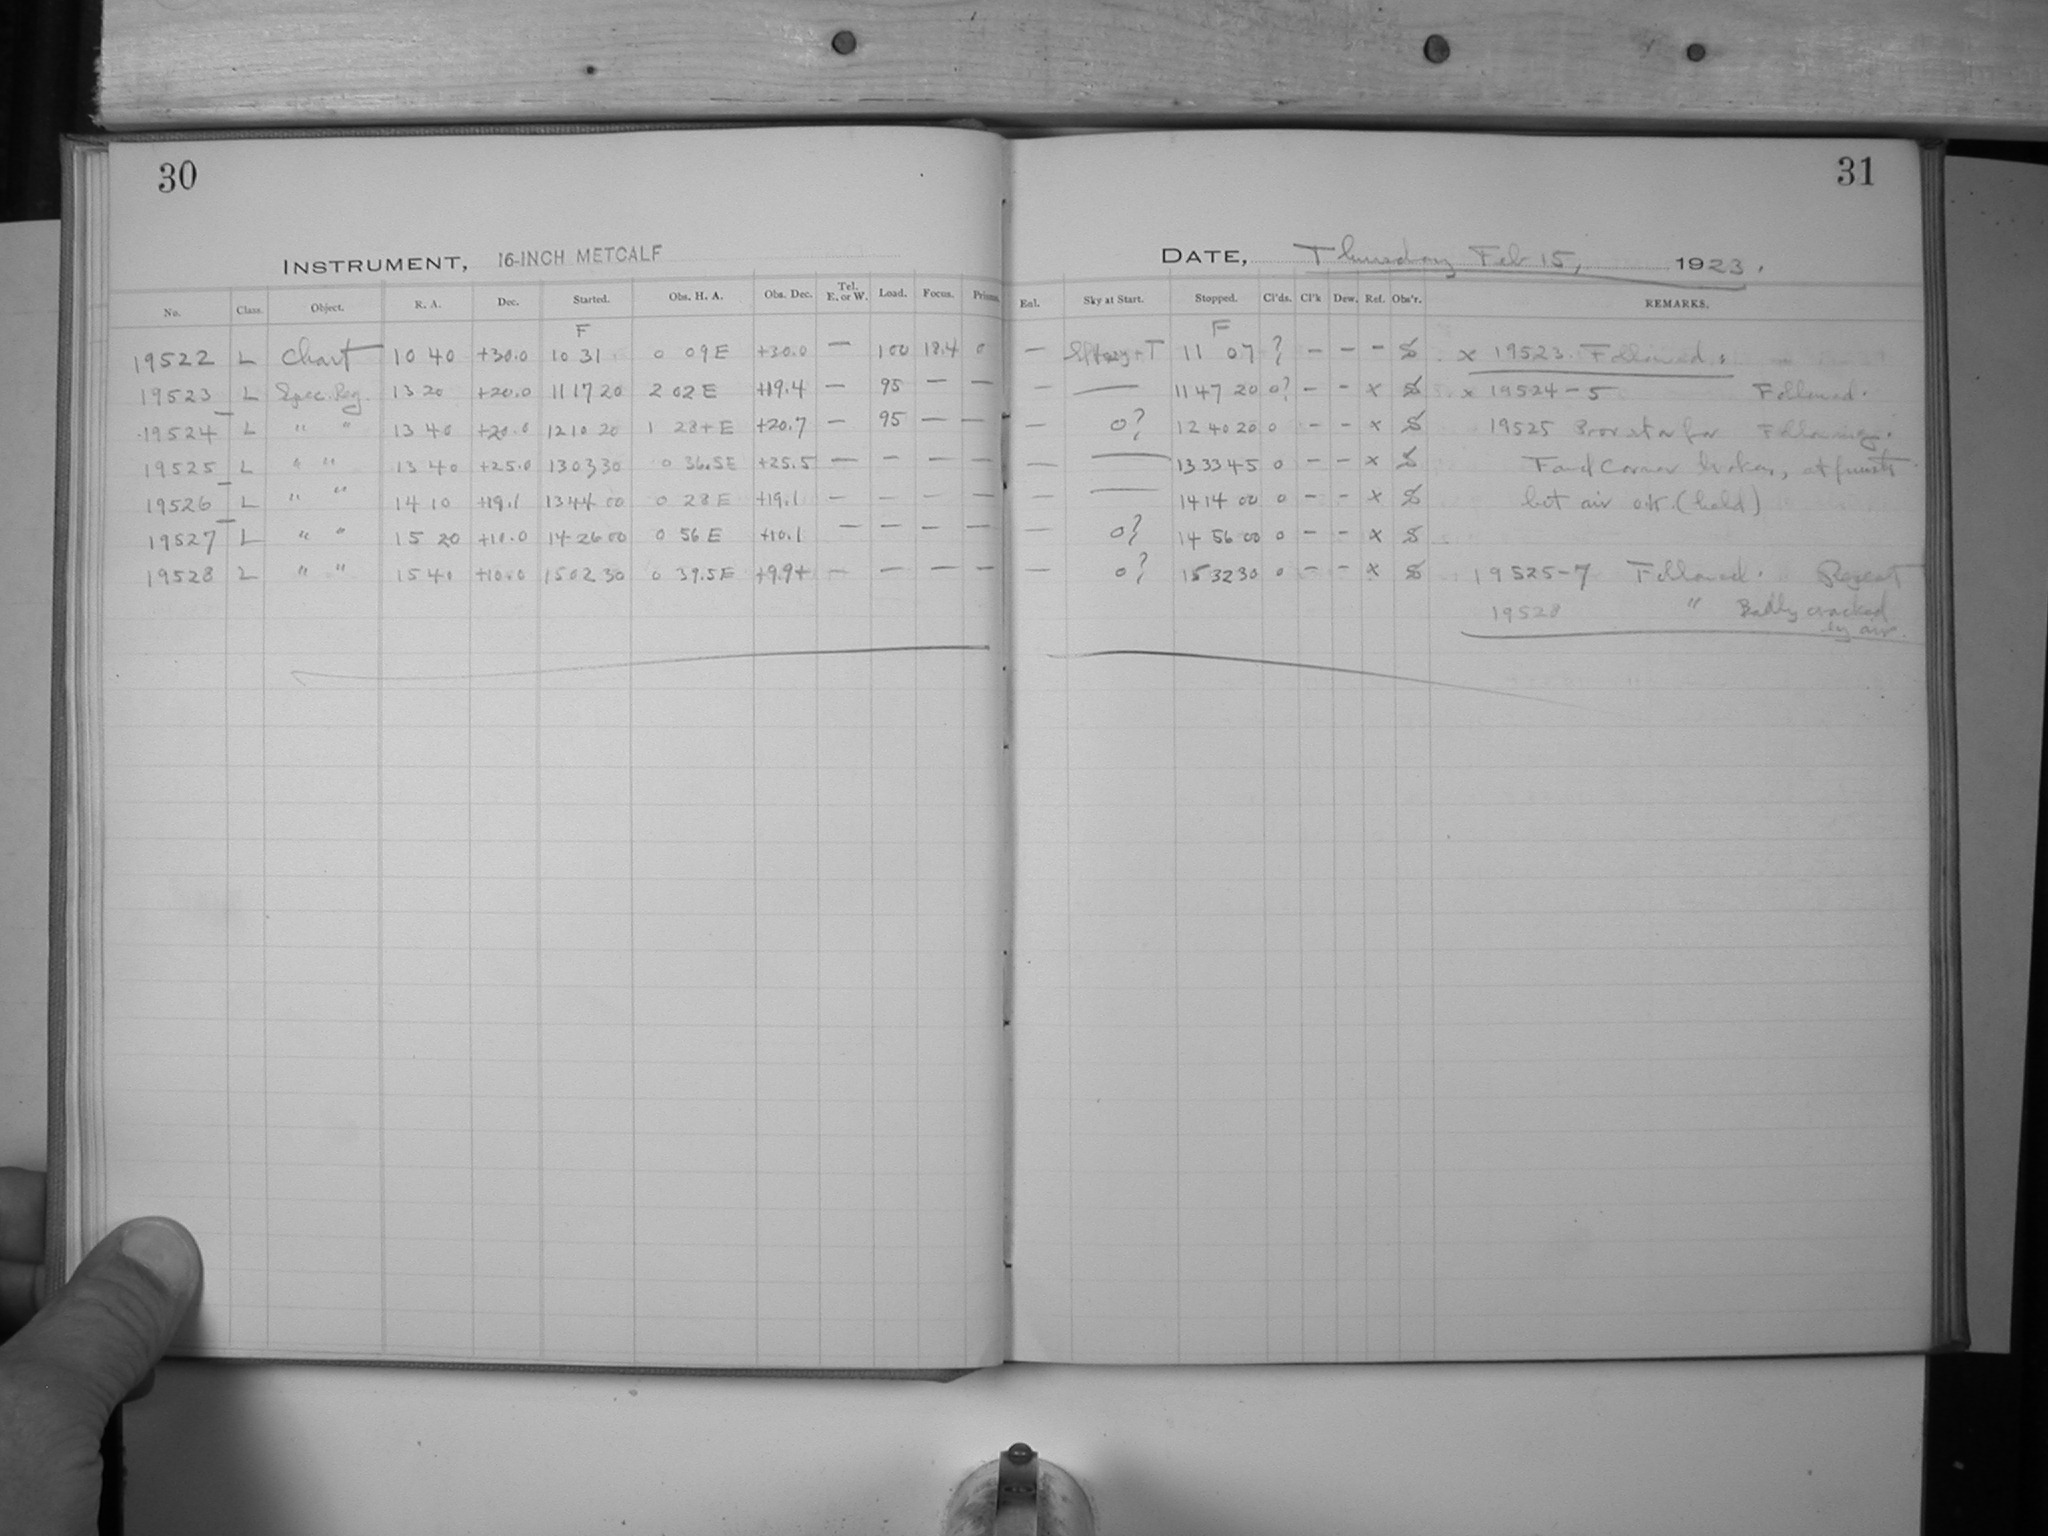 30
31
INSTRUMENT, 16-INCH METCALF
DATE, Thursday Feb 15, 1923.
No. Class. Object. R. A. Dec. Started. Obs. H. A. Obs. Dec. Tel. E. or W. Load. Focus. Prisms. Enl. Sky at Start. Stopped. Cl'ds. Cl'k Dew. Ref. Obs'r. REMARKS.
F F
19522 L Chart 10 40 +30.0 10 31 0 09 E +30.0 — 100 18.4 0 — 11 07 ? – – – S x 19523 Followed.
19523 L Spec. Reg. 13 20 +20.0 11 17 20 2 02 E +19.4 — 95 — — — — 11 47 20 0? – – x S x 19524-5 Followed.
19524 L " " 13 40 +20.0 12 10 20 1 28+ E +20.7 — 95 — — — 0? 12 40 20 0 – – x S 19525 Poor star for Following.
19525 L " " 13 40 +25.0 13 03 30 0 36.5 E +25.5 — — — — — — 13 33 45 0 – – x S F and Corner broken, at
19526 L " " 14 10 +19.1 13 44 00 0 28 E +19.1 — — — — — — 14 14 00 0 – – x S but air o.k. (hold)
19527 L " " 15 20 +10.0 14 26 00 0 56 E +10.1 — — — — — 0? 14 56 00 0 – – x S
19528 L " " 15 40 +10.0 15 02 30 0 39.5 E +9.9+ — — — — — 0? 15 32 30 0 – – x S 19525-7 Followed. Repeat
19528 " Badly cracked
by air.